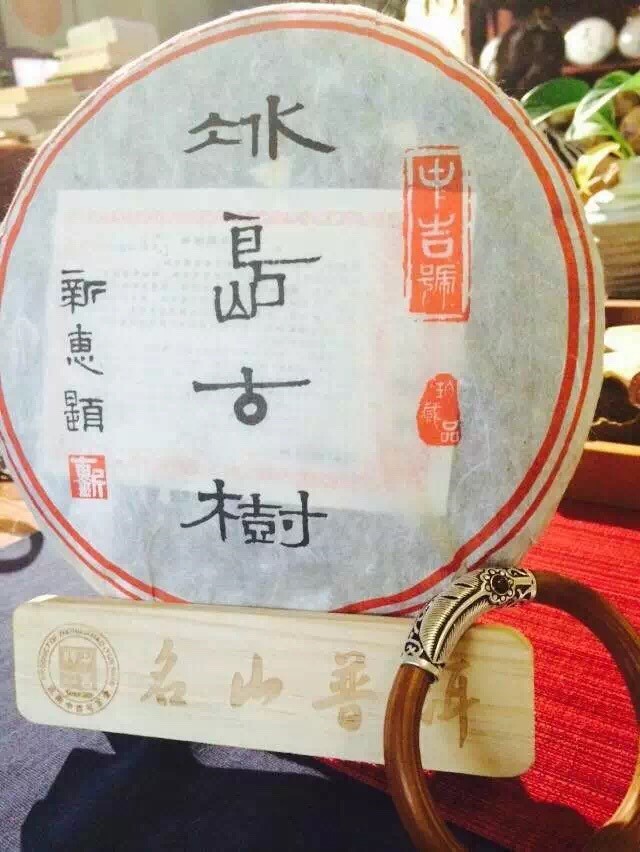 中吉號
珍藏品
冰島古樹
新惠題
名山普洱